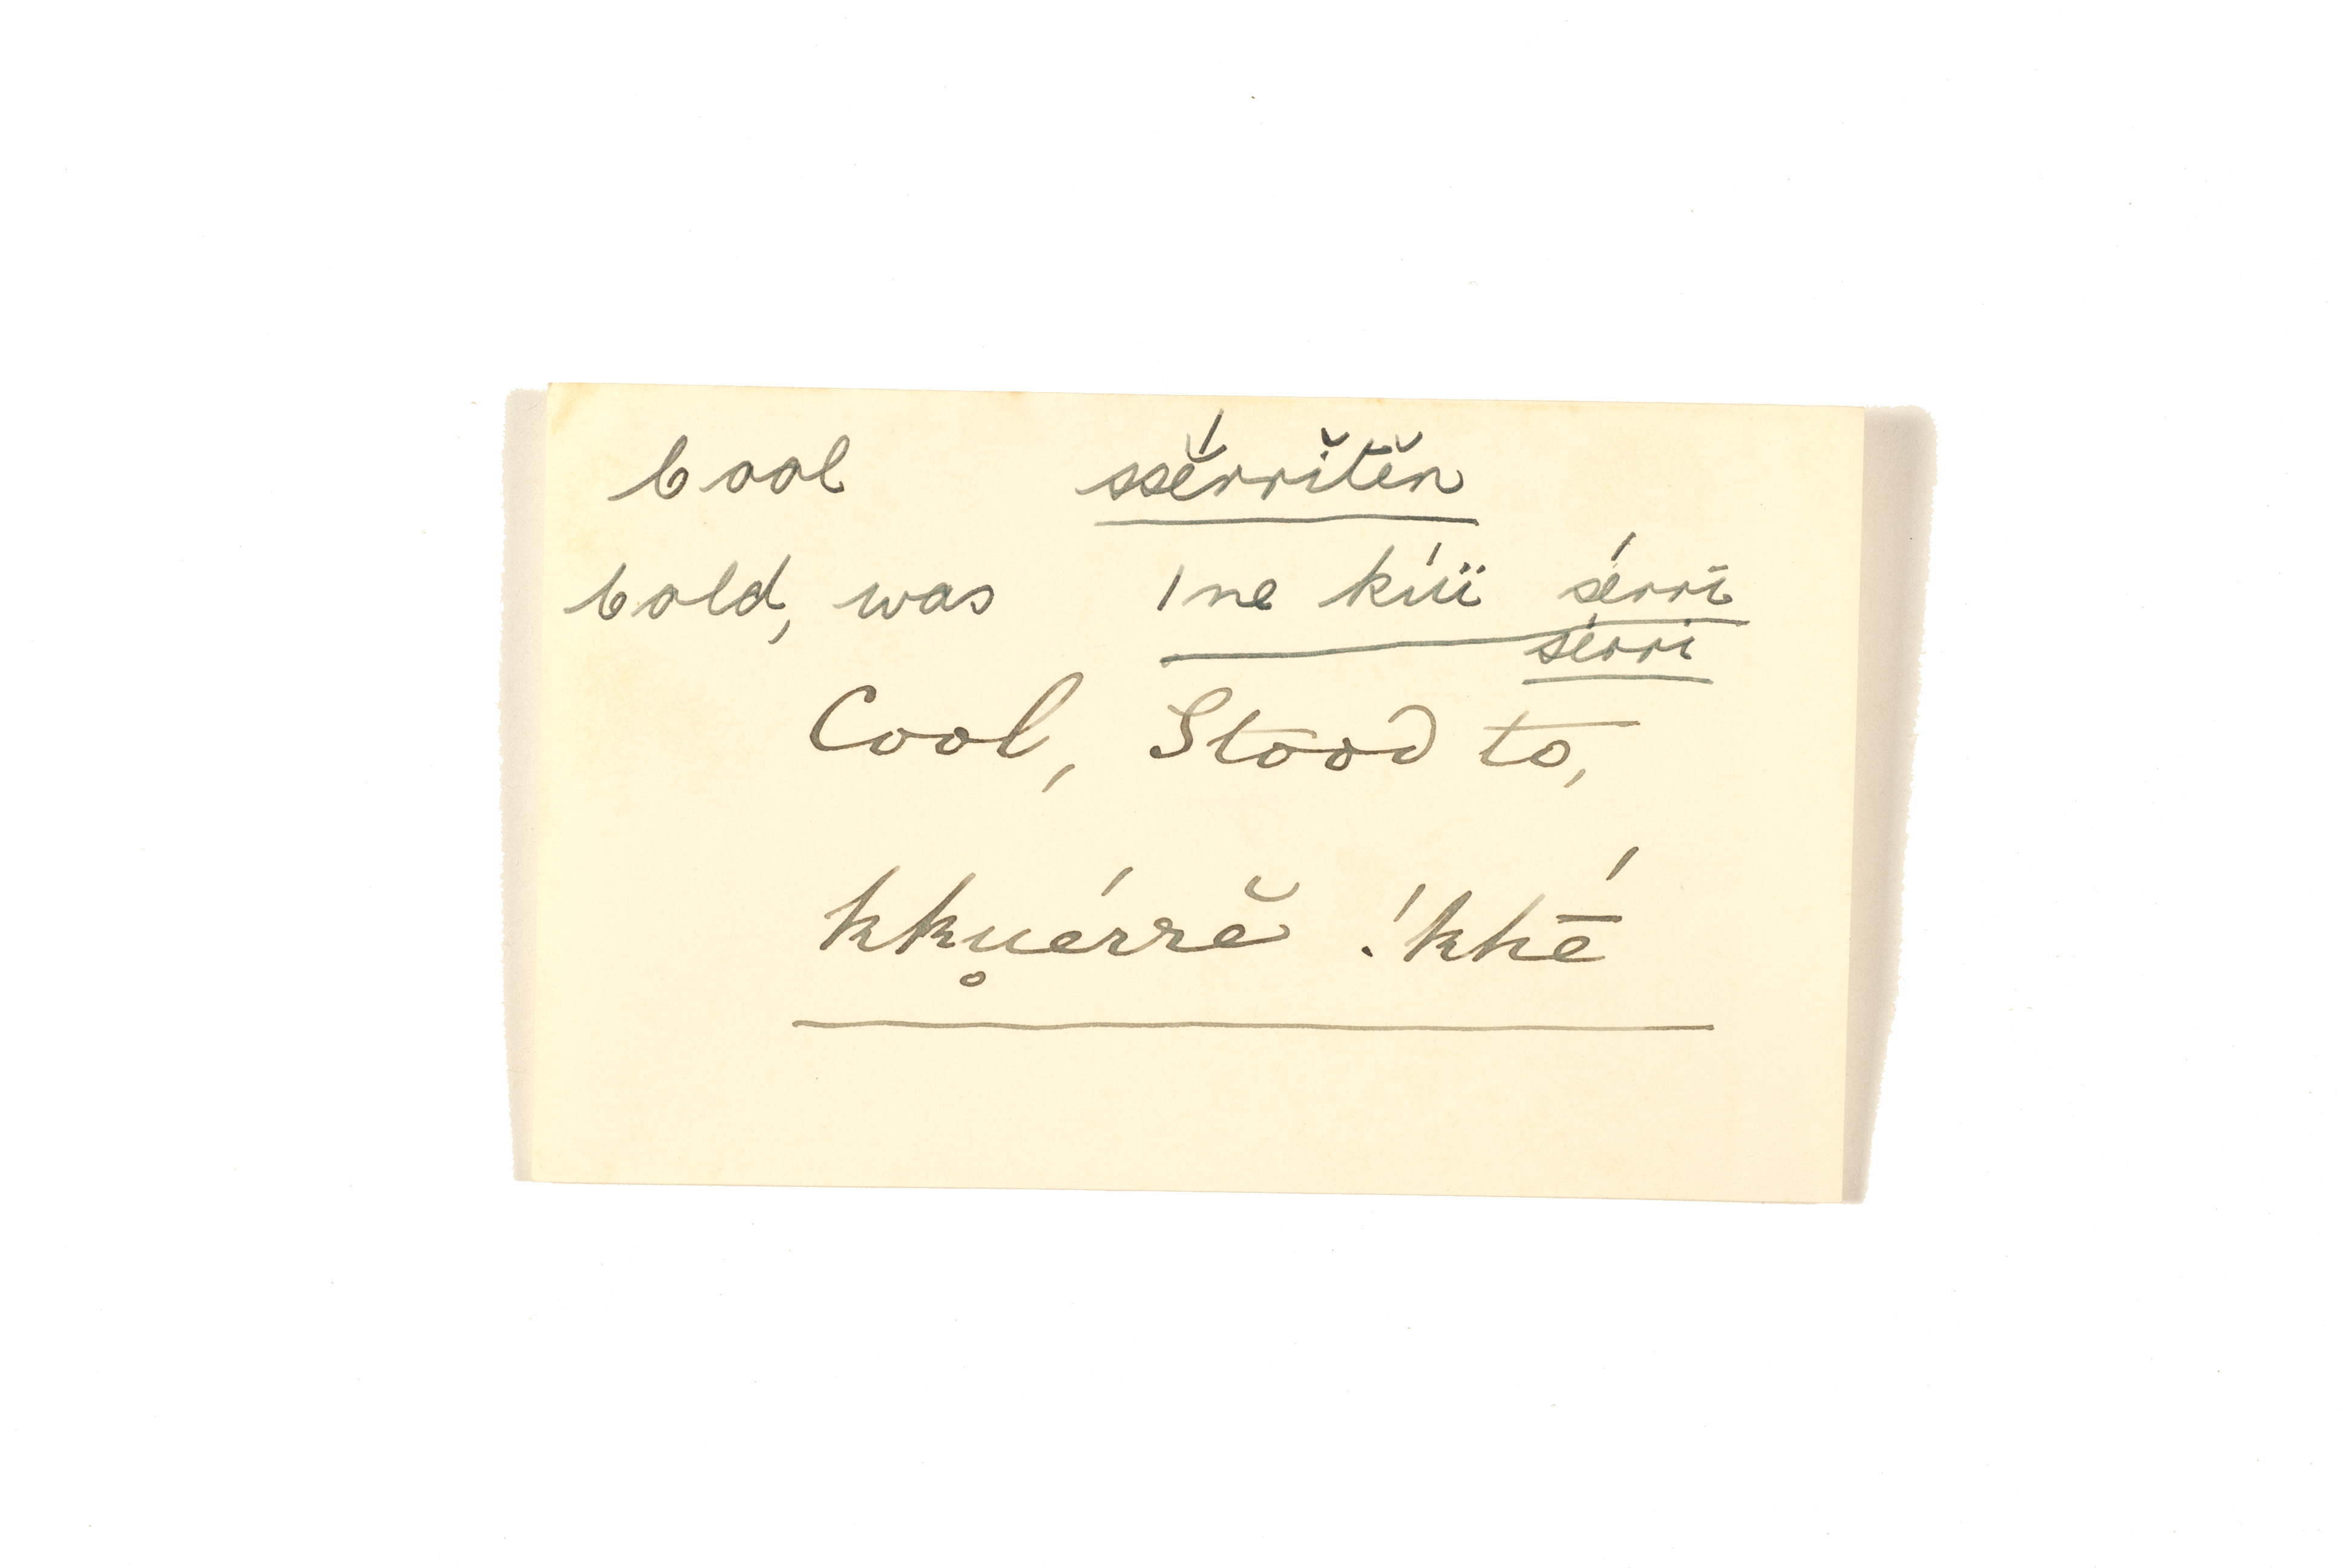 Cool ssĕ́rrĭtĕn
Cold, was |ne kíü sérrī
sérri
Cool, Stood to,
kku̥érrĕ !'khḗ